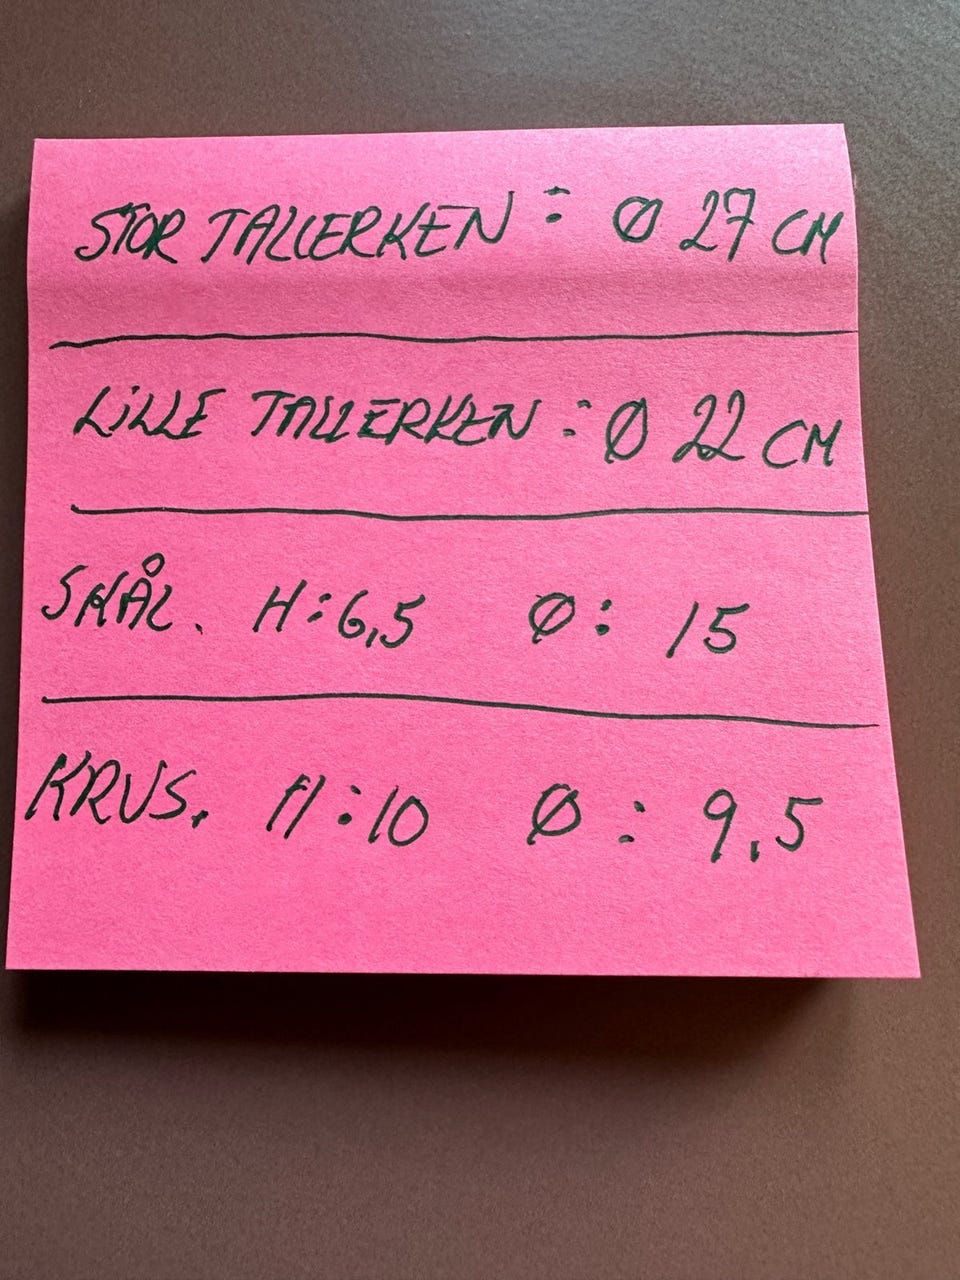 STOR TALLERKEN: Ø 27 CM
LILLE TALLERKEN: Ø 22 CM
SKÅL. H:6,5 Ø: 15
KRUS. H:10 Ø: 9,5